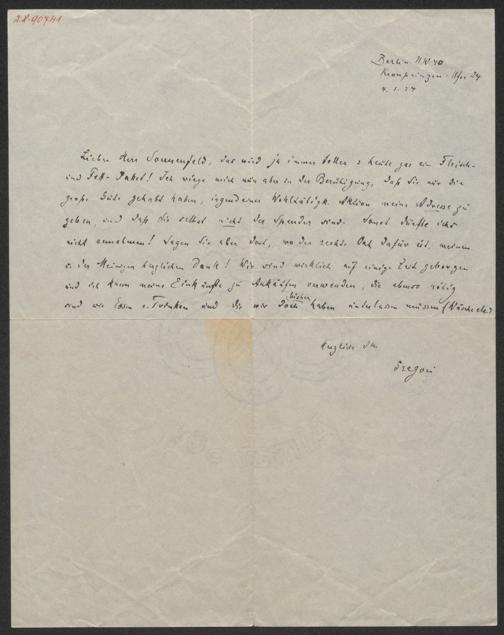 Berlin NW 40
Kronprinzen-Ufer 24
4. 1. 24
Lieber Herr Sonnenfeld, das wird ja immer toller: heute gar ein Fleisch-
und Fett-Paket! Ich wiege mich nun aber in der Beruhigung, daß Sie nur die
große Güte gehabt haben, irgend einer Wohltätigk. Aktion meine Adresse zu
geben, und daß Sie selbst nicht der Spender sind. Sonst dürfte ich's
nicht annehmen! Sagen Sie aber dort, wo der rechte Ort dafür ist, meinen
u. der Meinigen herzlichen Dank! Wir sind wirklich auf einige Zeit geborgen
und ich kann meine Einkünfte zu Ankäufen verwenden, die ebenso nötig
sind wie Essen u. Trinken und die wir doch bisher haben unterlassen müssen (Wäsche etc.)
Herzlichst Ihr
Gregori